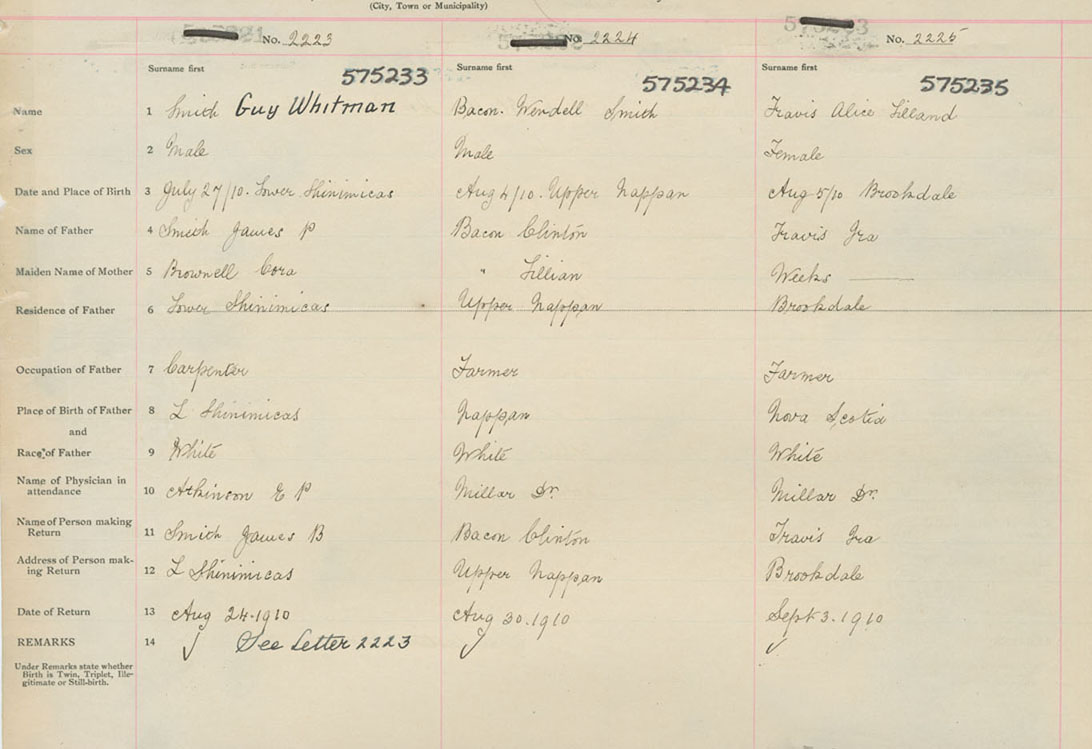 (City, Town or Municipality)
No. 2223 No. 2224 No. 2225
Surname first Surname first Surname first
575233 575234 575235
Name 1 Smith Guy Whitman Bacon. Wendell Smith Travis Alice Lilland
Sex 2 Male Male Female
Date and Place of Birth 3 July 27/10. Lower Shinimicas Aug 4/10. Upper Nappan Aug 5/10 Brookdale
Name of Father 4 Smith James P Bacon Clinton Travis Ira
Maiden Name of Mother 5 Brownell Cora " Lillian Weeks ——
Residence of Father 6 Lower Shinimicas Upper Nappan Brookdale
Occupation of Father 7 Carpenter Farmer Farmer
Place of Birth of Father 8 L Shinimicas Nappan Nova Scotia
and
Race of Father 9 White White White
Name of Physician in
attendance 10 Atkinson E P Millar Dr. Millar Dr.
Name of Person making
Return 11 Smith James B Bacon Clinton Travis Ira
Address of Person mak-
ing Return 12 L Shinimicas Upper Nappan Brookdale
Date of Return 13 Aug 24-1910 Aug 30.1910 Sept 3.1910
REMARKS 14 ✓ See Letter 2223 ✓ ✓
Under Remarks state whether
Birth is Twin, Triplet, Ille-
gitimate or Still-birth.